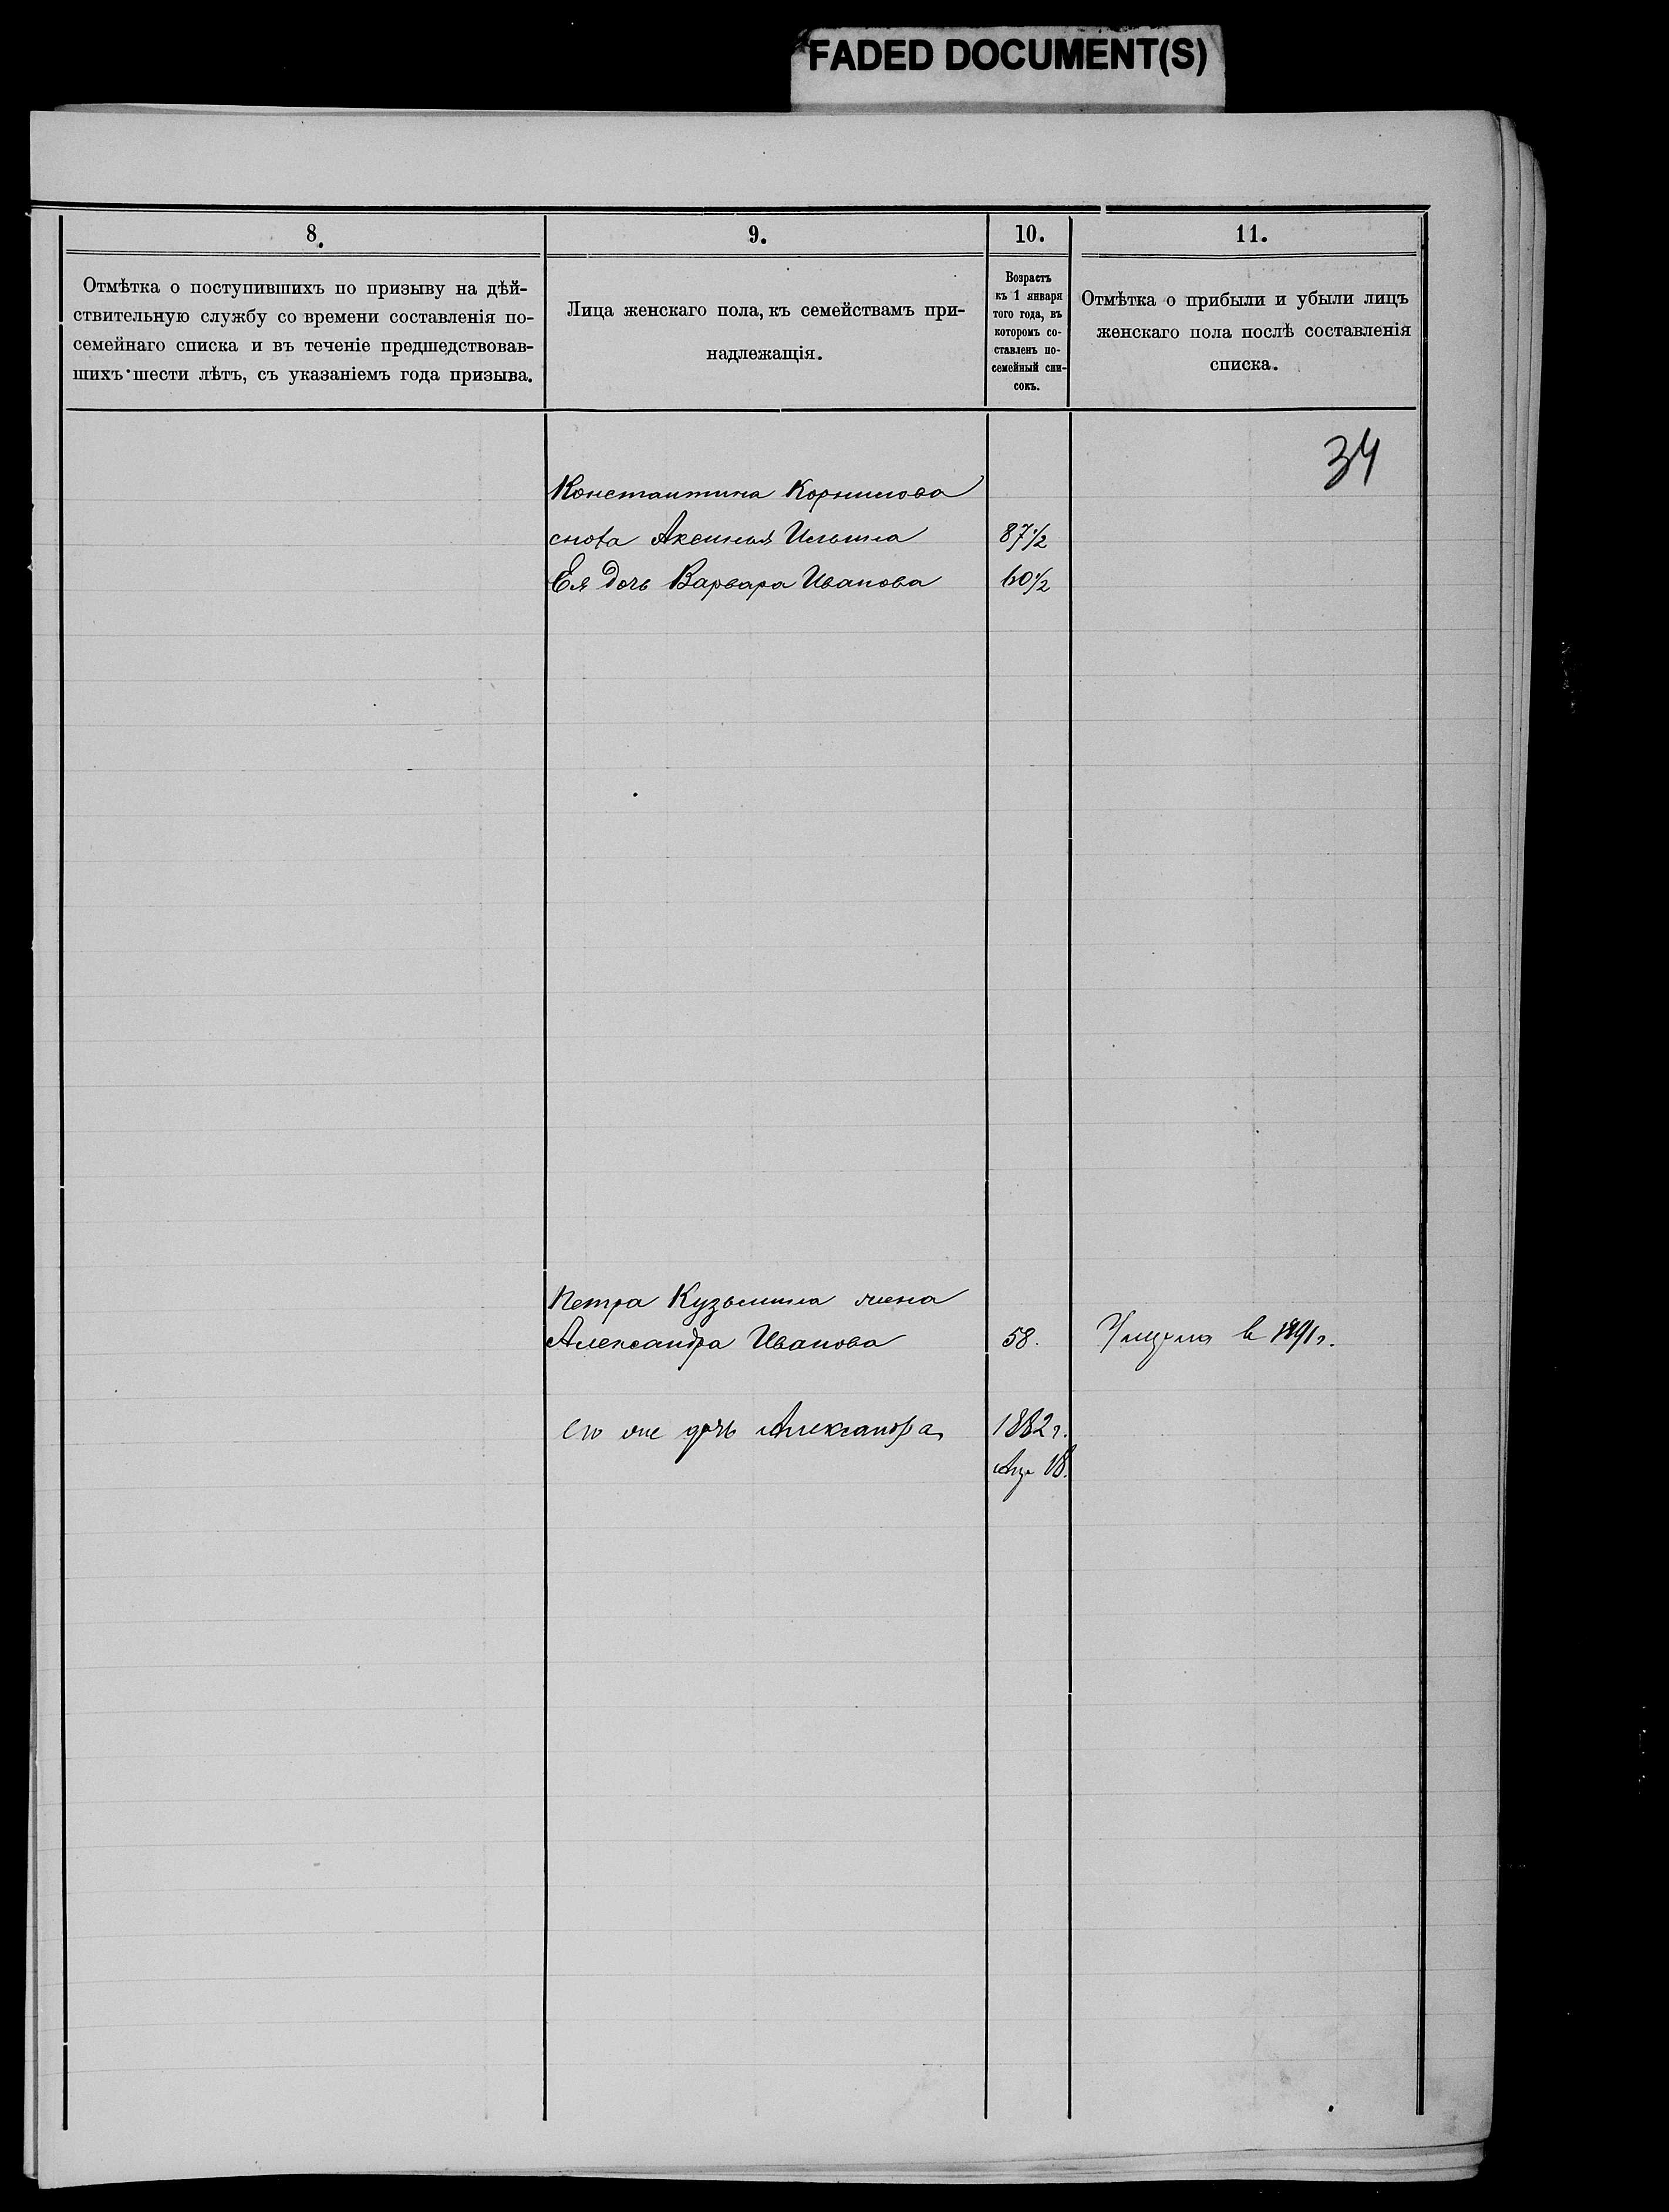 FADED DOCUMENT(S)
8.
9.
10.
11.
Отмѣтка о поступившихъ по призыву на дѣй-
ствительную службу со времени составленія по-
семейнаго списка и въ теченіе предшедствовав-
шихъ шести лѣтъ, съ указаніемъ года призыва.
Лица женскаго пола, къ семействамъ при-
надлежащія.
Возрастъ
къ 1 января
того года, въ
которомъ со-
ставленъ по-
семейный спи-
сокъ.
Отмѣтка о прибыли и убыли лицъ
женскаго пола послѣ составленія
списка.
34
Константина Корнилова
сноха Аксинья Ильина 87½
Ея дочь Варвара Иванова 60½
Петра Кузьмина жена
Александра Иванова 58. в 1891 г.
его же дочь Александра 1882 г.
18.